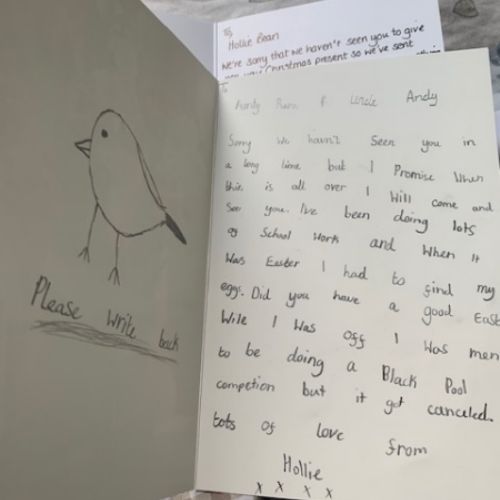 To,
Hollie Bean
We're sorry that we haven't seen you to give
Christmas present so we've sent
To
Aunty & Uncle Andy
Sorry we havn't Seen you in
a long time but I Promise When
this is all over I Will come and
See you. I've been doing lots
of School Work and When it
Was Easter I had to find my
eggs. Did you have a good East
Wile I Was off I Was men
to be doing a Black Pool
competion but it got canceled.
Lots of love from
Hollie
x x x x
Please write back